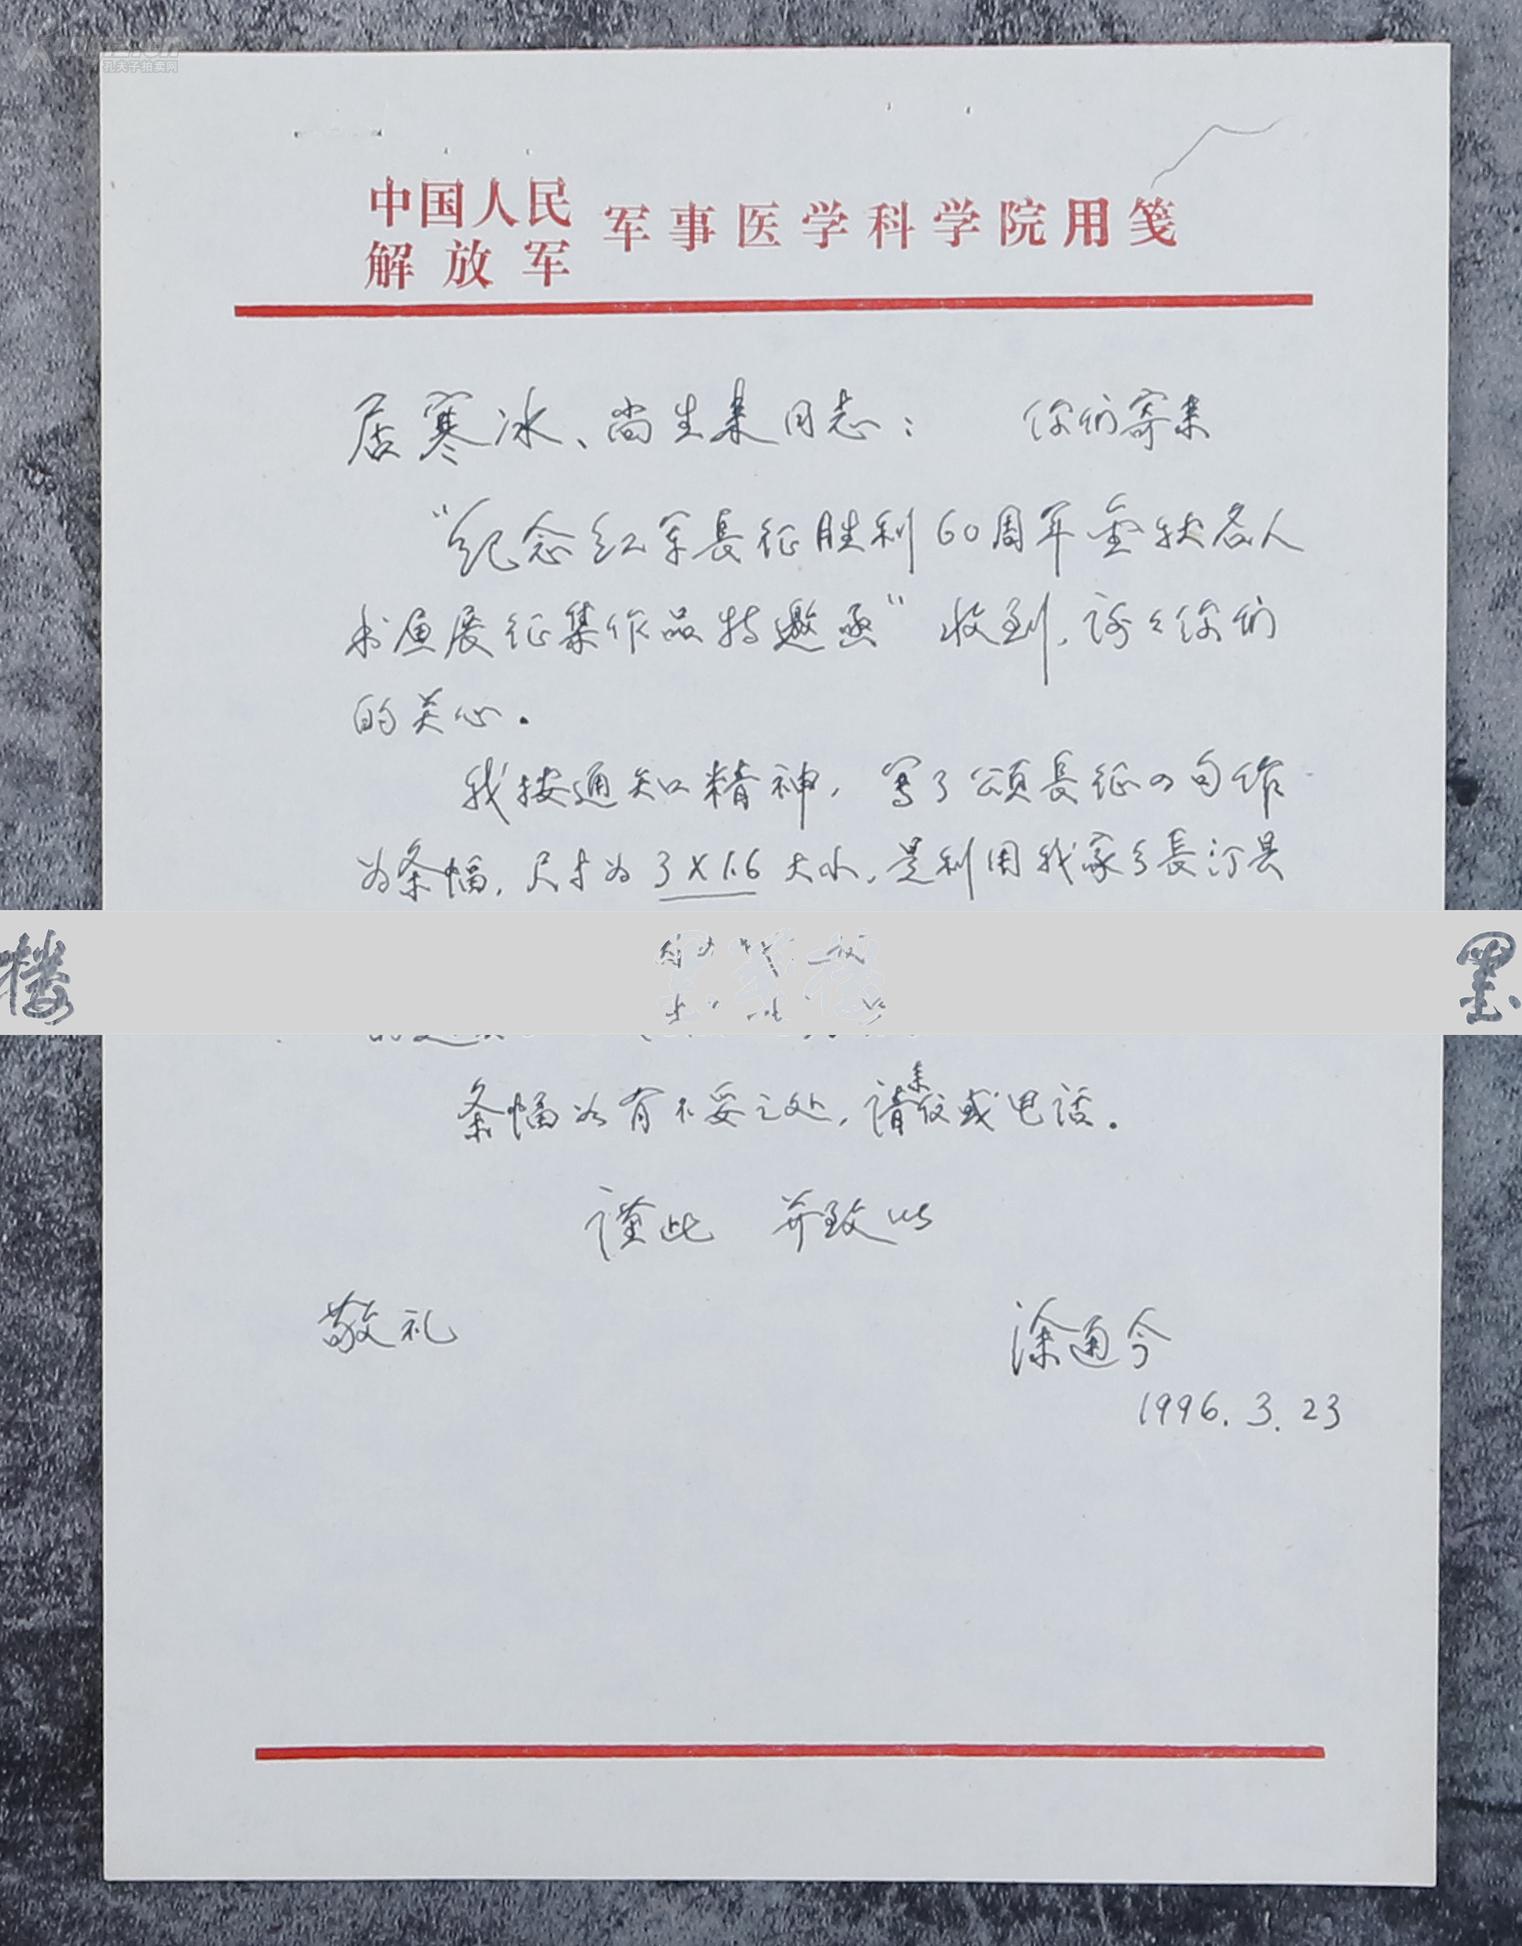 孔夫子拍卖网
中国人民解放军 军事医学科学院用笺
居寒冰、尚生来同志： 你们寄来
“纪念红军長征胜利60周年全球名人
书画展征集作品特邀函”收到，谢々你们
的关心．
我按通知精神，写了颂長征の句作
为条幅，尺寸为3×1.6大小，是利用我家乡長汀县
楼 墨
条幅如有不妥之处，请来信或电话．
谨此 并致以
敬礼
涂通今
1996.3.23